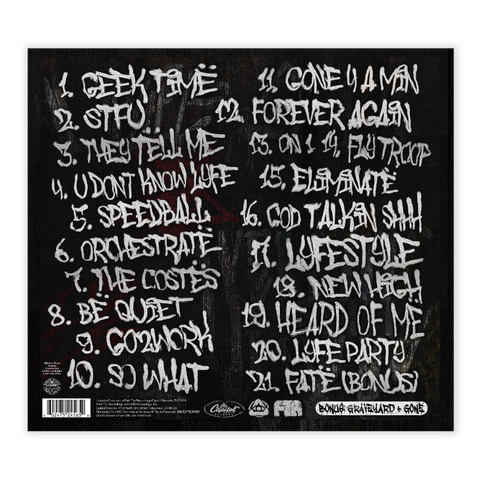 1. GEEK TIMË
2. STFU
3. THEY TËLL ME
4. U DONT KNOW LYFE
5. SPEEDBALL
6. ORCHESTRATË
7. THE COSTËS
8. BË QUIET
9. GO2WORK
10. SO WHAT
11. GONE 4 A MIN
12. FOREVER AGAIN
13. ON 1 14. FLY TROOP
15. ELIMINATË
16. GOD TALKIN SHH
17. LYFESTYLE
18. NEW HIGH
19. HEARD OF ME
20. LYFE PARTY
21. FATË (BONUS)
Capitol
BONUS: GRAVEYARD + GONE